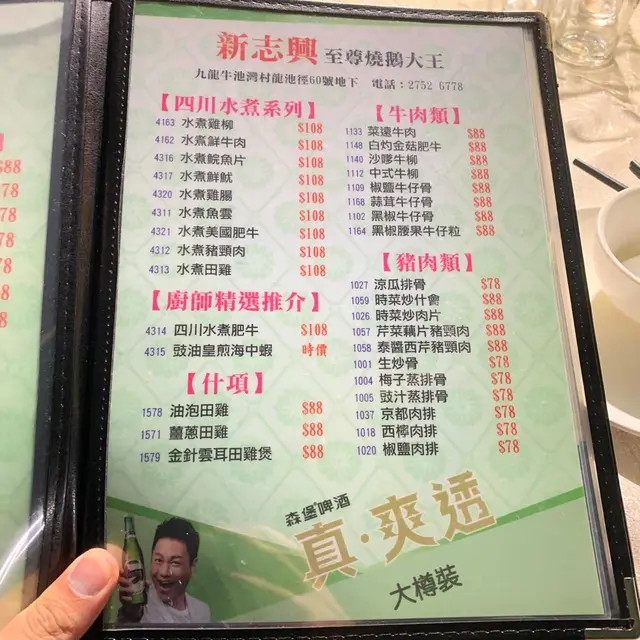 新志興 至尊燒鵝大王
九龍牛池灣村龍池徑60號地下 電話：2752 6778
【四川水煮系列】
4163 水煮雞柳 $108
4162 水煮鮮牛肉 $108
4316 水煮鯇魚片 $108
4317 水煮鮮魷 $108
4320 水煮雞腸 $108
4311 水煮魚雲 $108
4321 水煮美國肥牛 $108
4312 水煮豬頸肉 $108
4313 水煮田雞 $108
【廚師精選推介】
4314 四川水煮肥牛 $108
4315 豉油皇煎海中蝦 時價
【什項】
1578 油泡田雞 $88
1571 薑蔥田雞 $88
1579 金針雲耳田雞煲 $88
【牛肉類】
1133 菜遠牛肉 $88
1148 白灼金菇肥牛 $88
1140 沙嗲牛柳 $88
1112 中式牛柳 $88
1109 椒鹽牛仔骨 $88
1168 蒜茸牛仔骨 $88
1102 黑椒牛仔骨 $88
1164 黑椒腰果牛仔粒 $88
【豬肉類】
1027 涼瓜排骨 $78
1059 時菜炒什會 $88
1026 時菜炒肉片 $88
1057 芹菜藕片豬頸肉 $88
1058 泰醬西芹豬頸肉 $88
1001 生炒骨 $78
1004 梅子蒸排骨 $78
1005 豉汁蒸排骨 $78
1037 京都肉排 $78
1018 西檸肉排 $78
1020 椒鹽肉排 $78
森堡啤酒
真·爽透
大樽裝
$88
78
78
$8
$8
$8
8